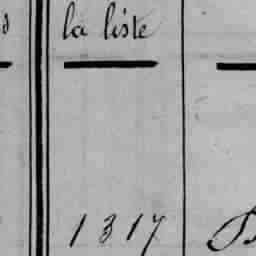 la liste
1317